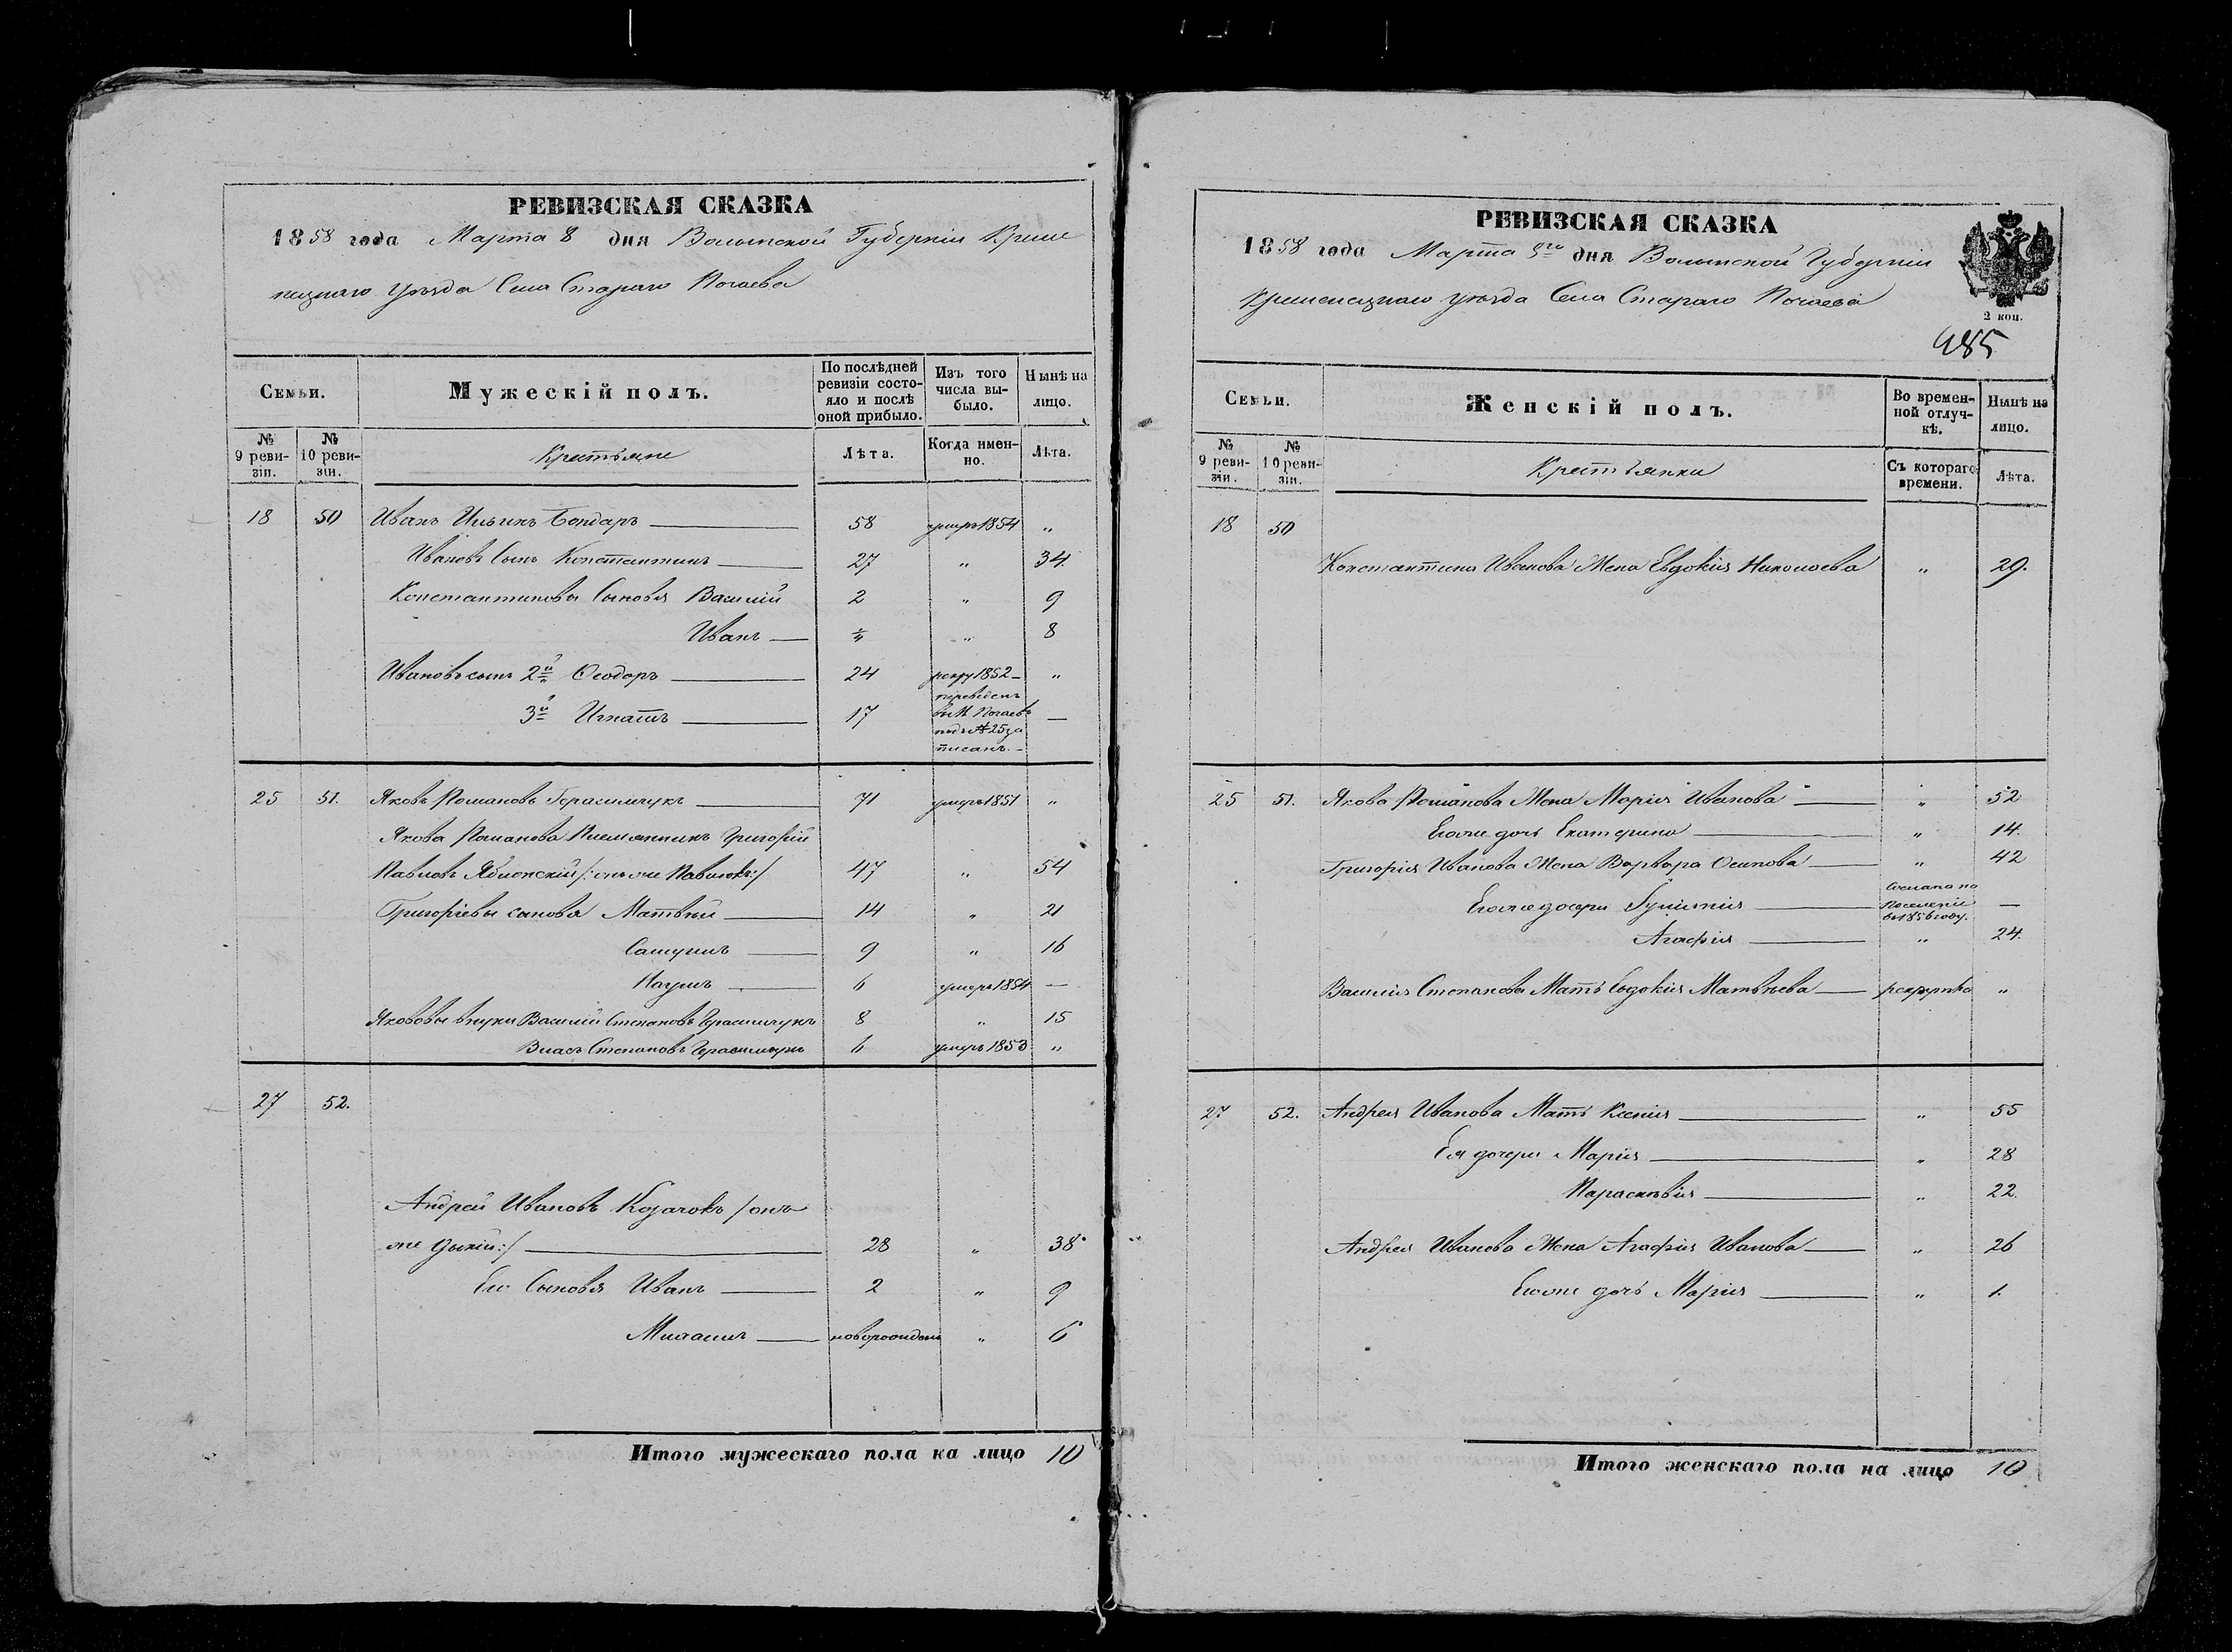 РЕВИЗСКАЯ СКАЗКА
1858 года Марта 8 дня Волынской Губерніи Креме
нецкаго Уѣзда Села Стараго Почаева
Семьи.
Мужескій полъ.
По послѣдней ревизіи состояло и послѣ оной прибыло.
Изъ того числа выбыло.
Нынѣ на лицо.
№ 9 ревизіи.
№ 10 ревизіи.
Крестьяне
Лѣта.
Когда именно.
Лѣта.
18 50 Иванъ Ильинъ Бондаръ 58 умеръ 1854 „
Ивановъ Сынъ Константинъ 27 „ 34.
Константиновы Сыновья Василій 2 „ 9
Иванъ „ 8
Ивановъ сынъ 2й Ѳеодоръ 24 рекру 1852 „
3й Игнатъ 17 переведенъ
въ М. Почаевъ —
подъ № 25 за
писанъ.
25 51. Яковъ Романовъ Герасимчукъ 71 умеръ 1851 „
Якова Романова Племянникъ Григорій
Павловъ Яблонскій /:онъ же Павлюкъ:/ 47 „ 54
Григоріевы сыновья Матвѣй 14 „ 21
Самуилъ 9 „ 16
Наумъ 6 умеръ 1854 —
Якововы внуки Василій Степановъ Герасимчукъ 8 „ 15
Власъ Степановъ Герасимчукъ 6 умеръ 1853 „
27 52.
Андрей Ивановъ Козачокъ /онъ
же Дыкій:/ 28 „ 38
Его Сыновья Иванъ 2 „ 9
новорожденъ „ 6
Итого мужескаго пола на лицо 10
РЕВИЗСКАЯ СКАЗКА
1858 года Марта дня Волынской Губерніи
Кременецкаго уѣзда Села Стараго Почаева
2 коп.
485
Семьи.
Женскій полъ.
Во временной отлучкѣ.
Нынѣ на лицо.
№ 9 ревизіи.
№ 10 ревизіи.
Крестьянки
Съ котораго времени.
Лѣта.
18 50
Константина Иванова Жена Евдокія Николаева „ 29.
25 51. Якова Романова Жена Марія Иванова „ 52
Его же дочь Екатерина „ 14.
Григорія Иванова Жена Варвара Осипова „ 42
Его же дочери Іулианія Сослана на
Поселеніе —
въ 1856 году.
Агафія „ 24.
Василія Степанова Мать Евдокія Матвѣева рекрутка „
27 52. Андрея Иванова Мать Ксенія „ 55
Ея дочери Марія „ 28
Параскевія „ 22.
Андрея Иванова Жена Агафія Иванова „ 26
Его же дочь Марія „ 1.
Итого женскаго пола на лицо 10